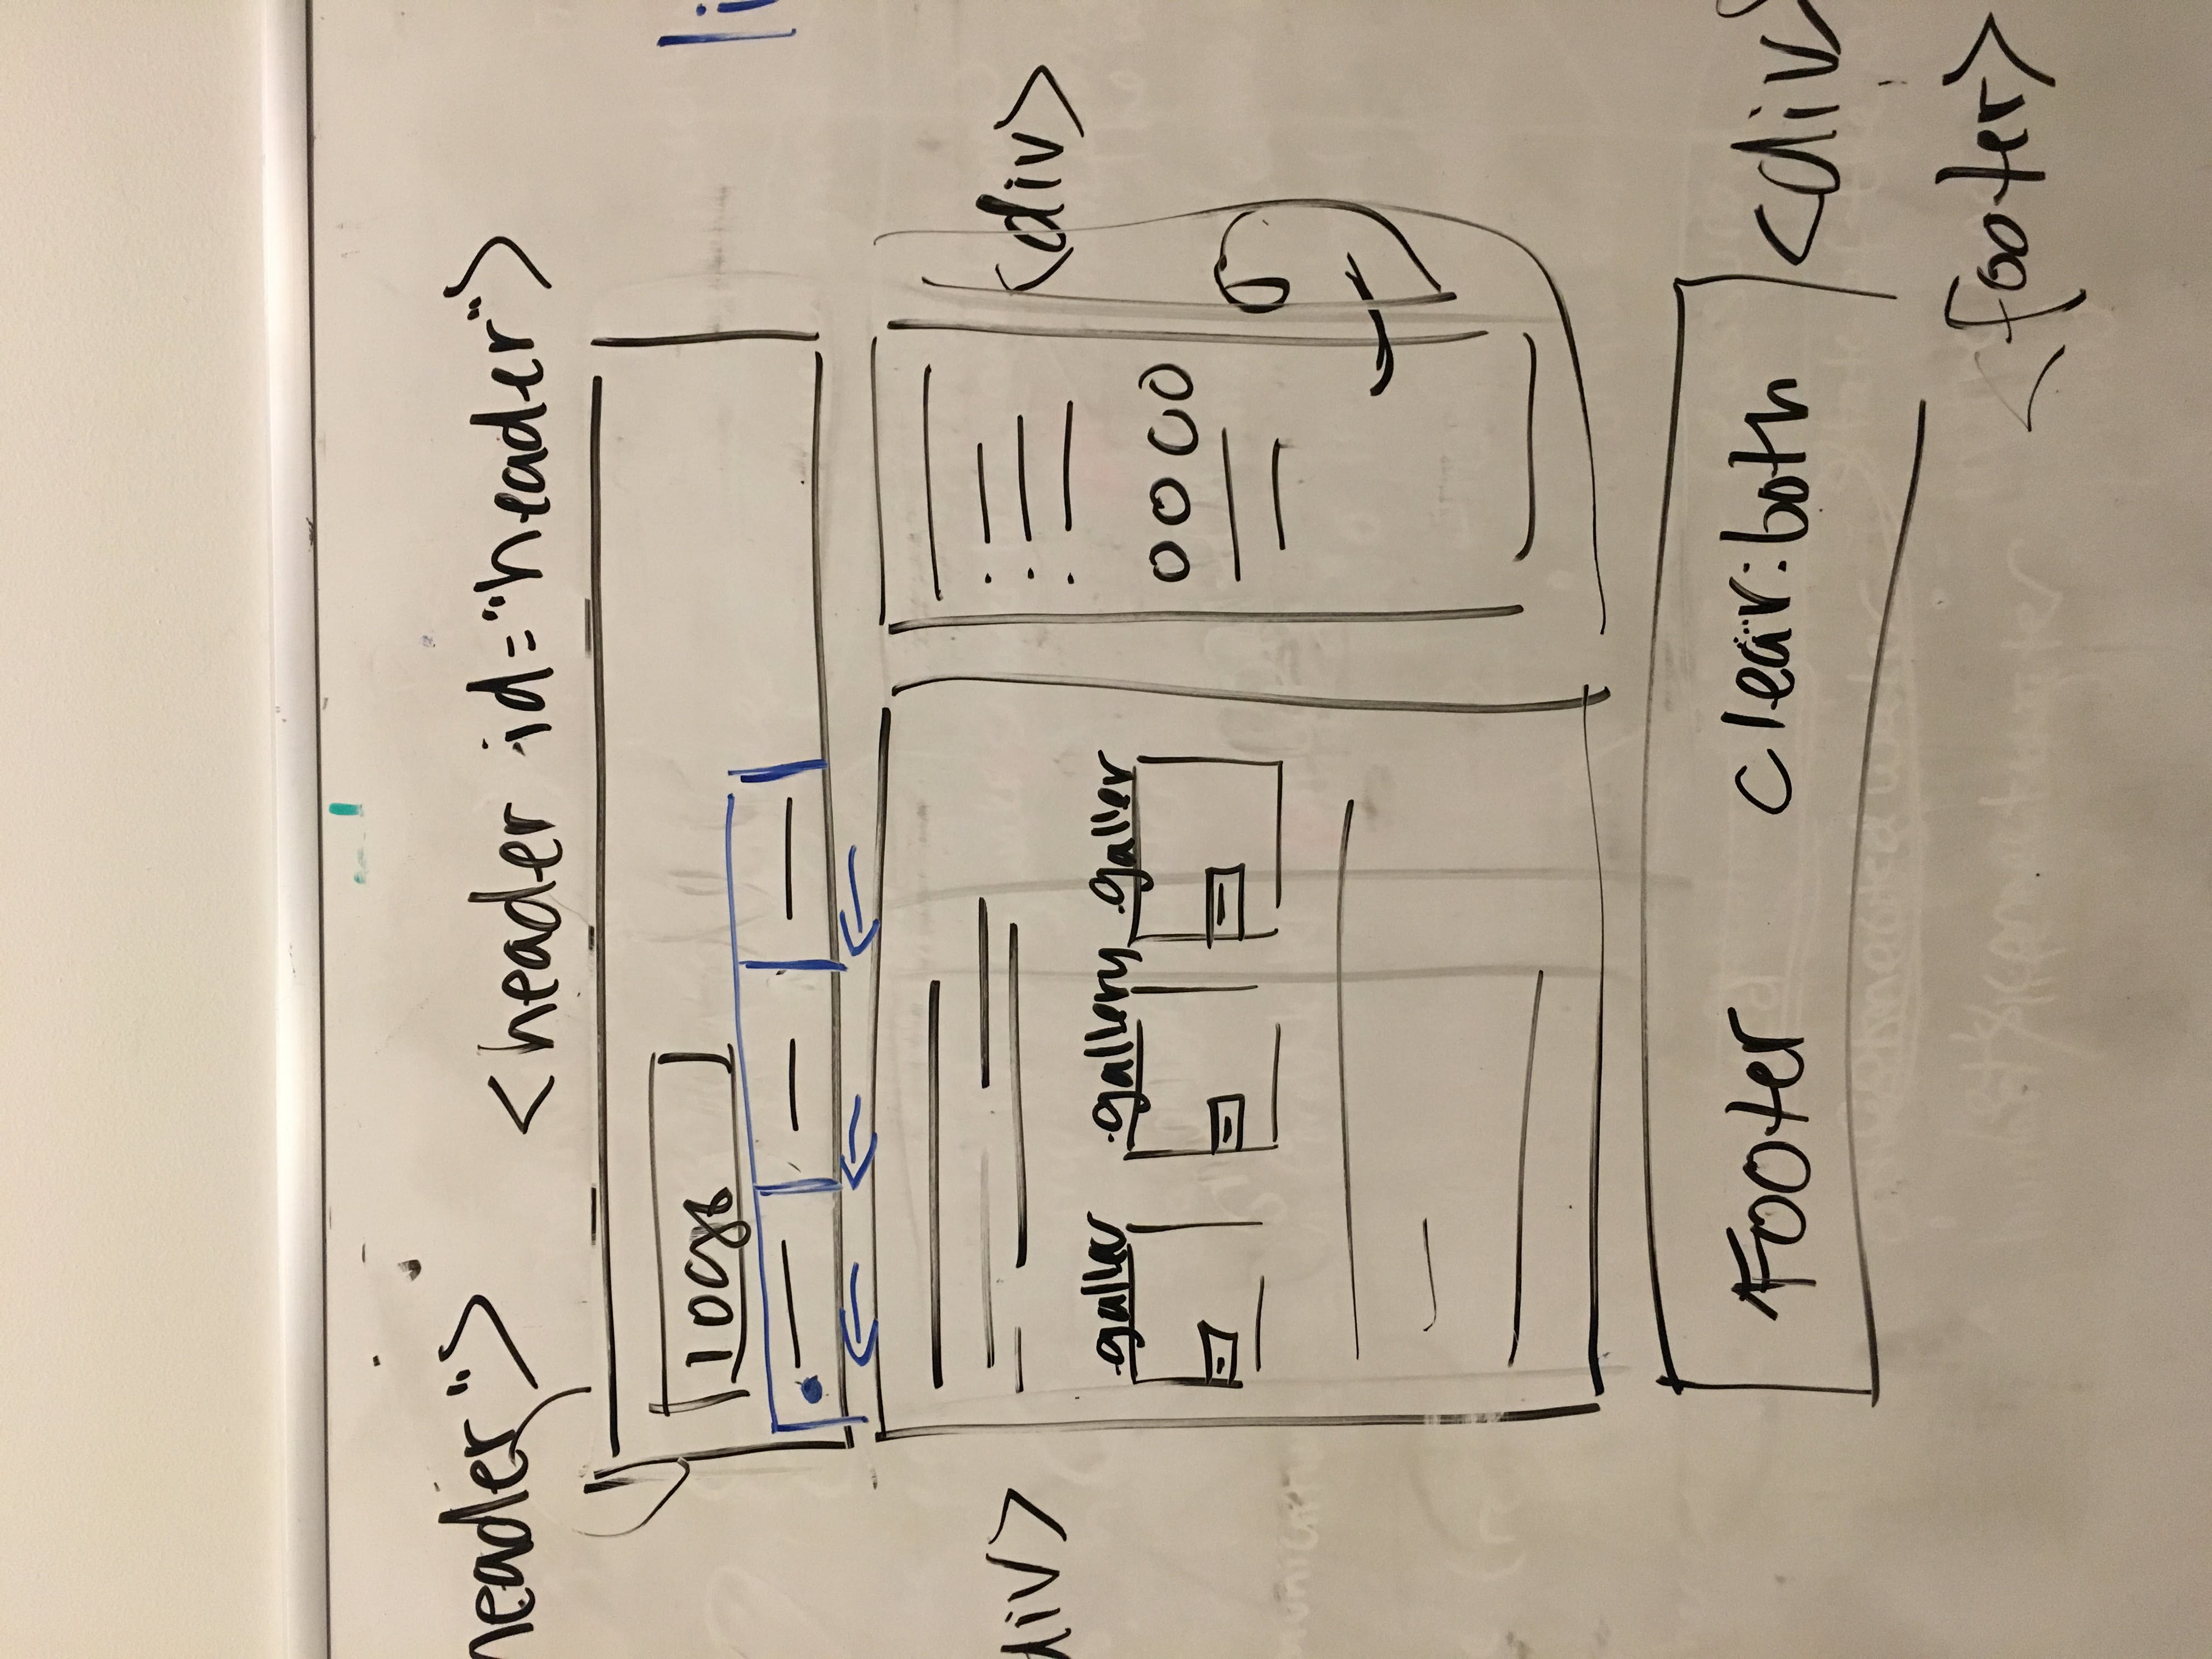 header">
<header id="header">
logo
li
div>
<div>
.galler
.gallery
.galler
Footer
clear:both
<div>
<footer>